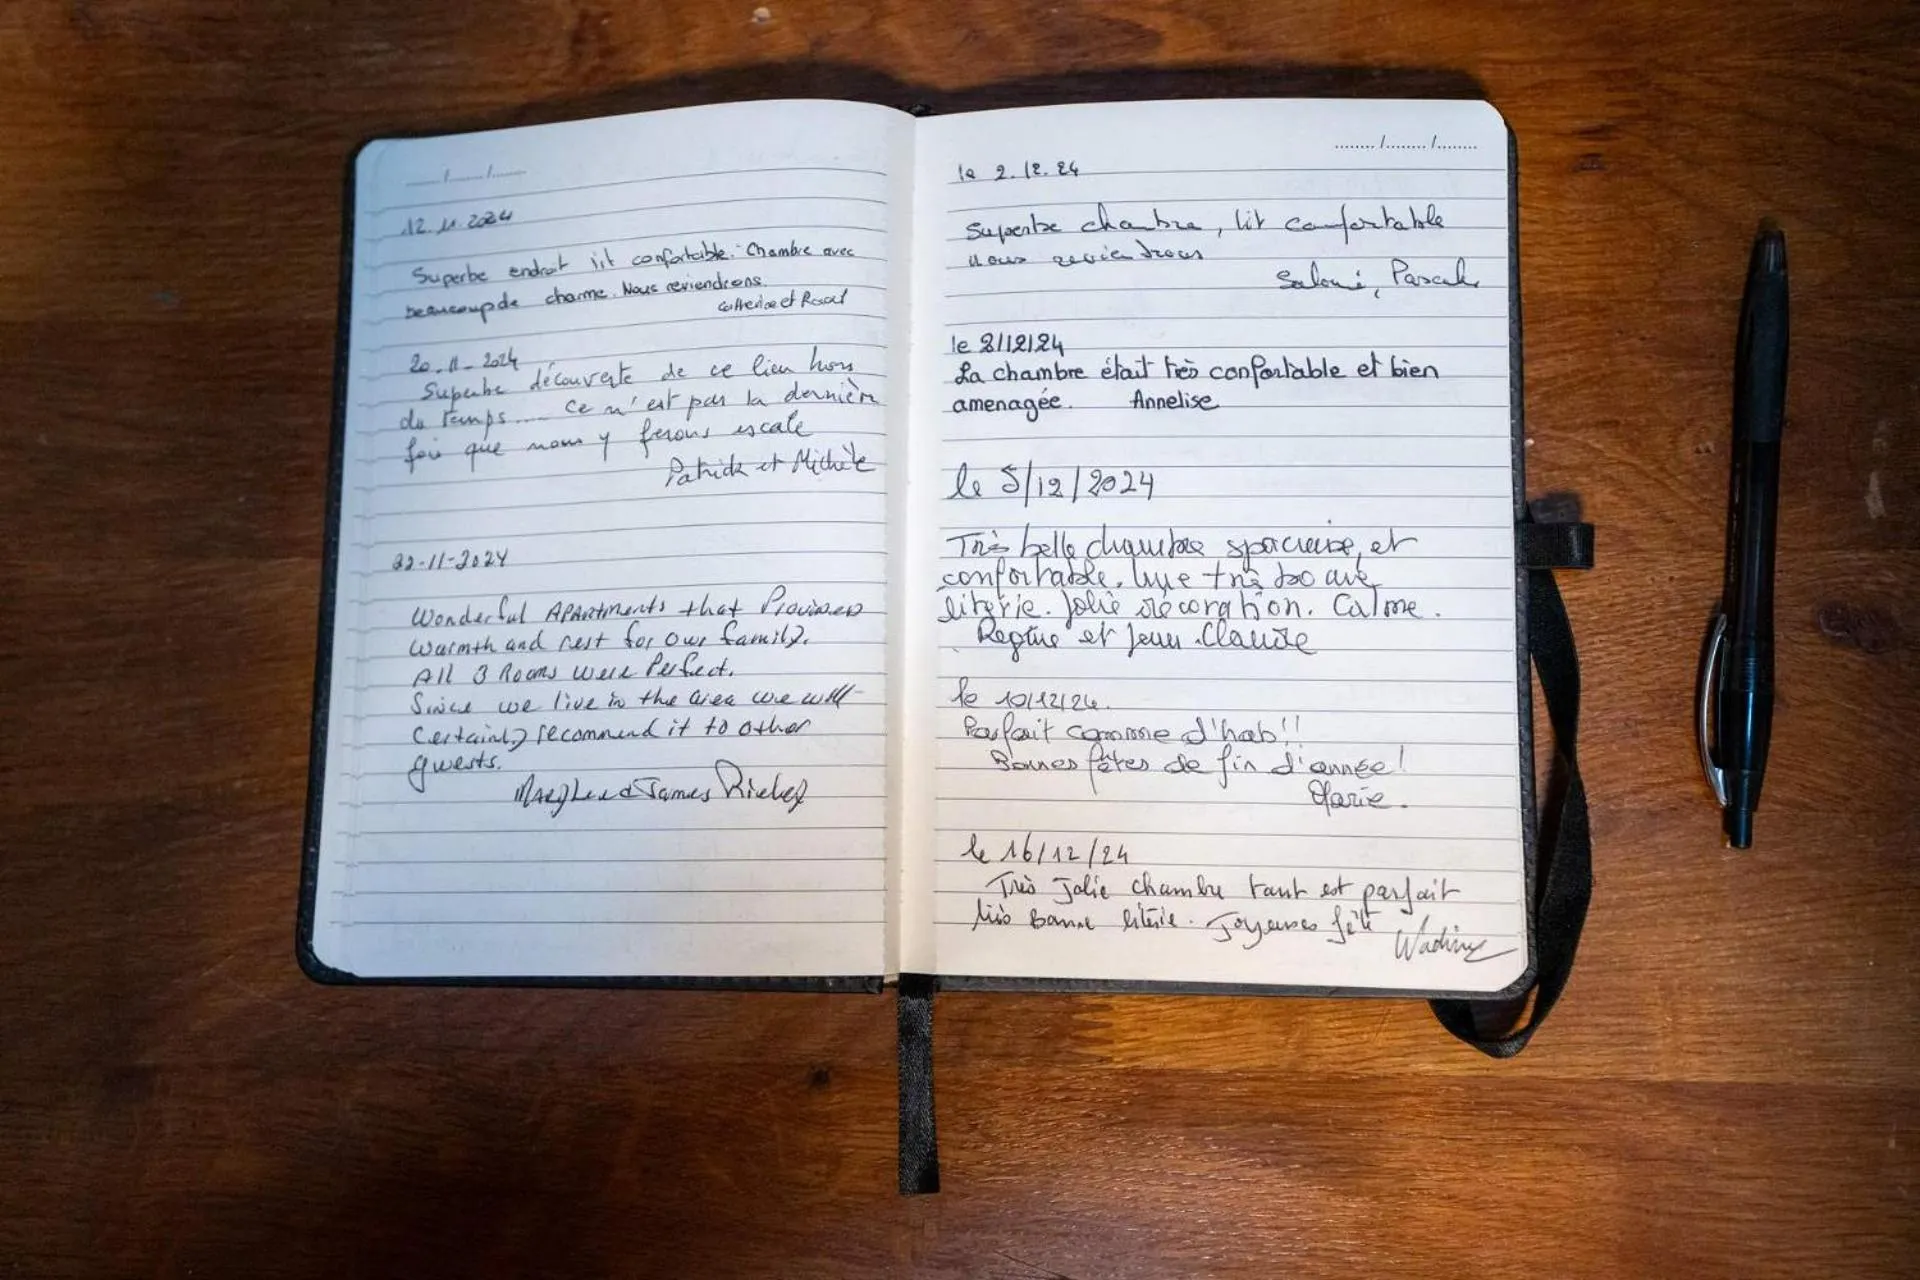 12.11.2024
Superbe endroit lit confortable. Chambre avec
beaucoup de charme. Nous reviendrons.
Catherine et
20.11.2024
Superbe découverte de ce lieu hors
du temps.... ce n'est pas la dernière
fois que nous y ferons escale
Patrick et Michèle
22-11-2024
Wonderful Apartments that Provided
warmth and rest for our family.
All 3 Rooms were Perfect.
Since we live in the area we will
certainly recommend it to other
guests.
James
......../......../........
le 2.12.24
Superbe chambre, lit confortable
nous reviendrons
Salomé, Pascale
le 2/12/24
La chambre était très confortable et bien
amenagée. Annelise
le 5/12/2024
Très belle chambre spacieuse, et
confortable. Une très bonne
literie. Jolie décoration. Calme.
Regine et Jean-Claude
le 10/12/24.
Parfait comme d'hab!!
Bonnes fêtes de fin d'année!
Marie.
le 16/12/24
Très Jolie chambre tout est parfait
très Bonne literie. Joyeuses fête